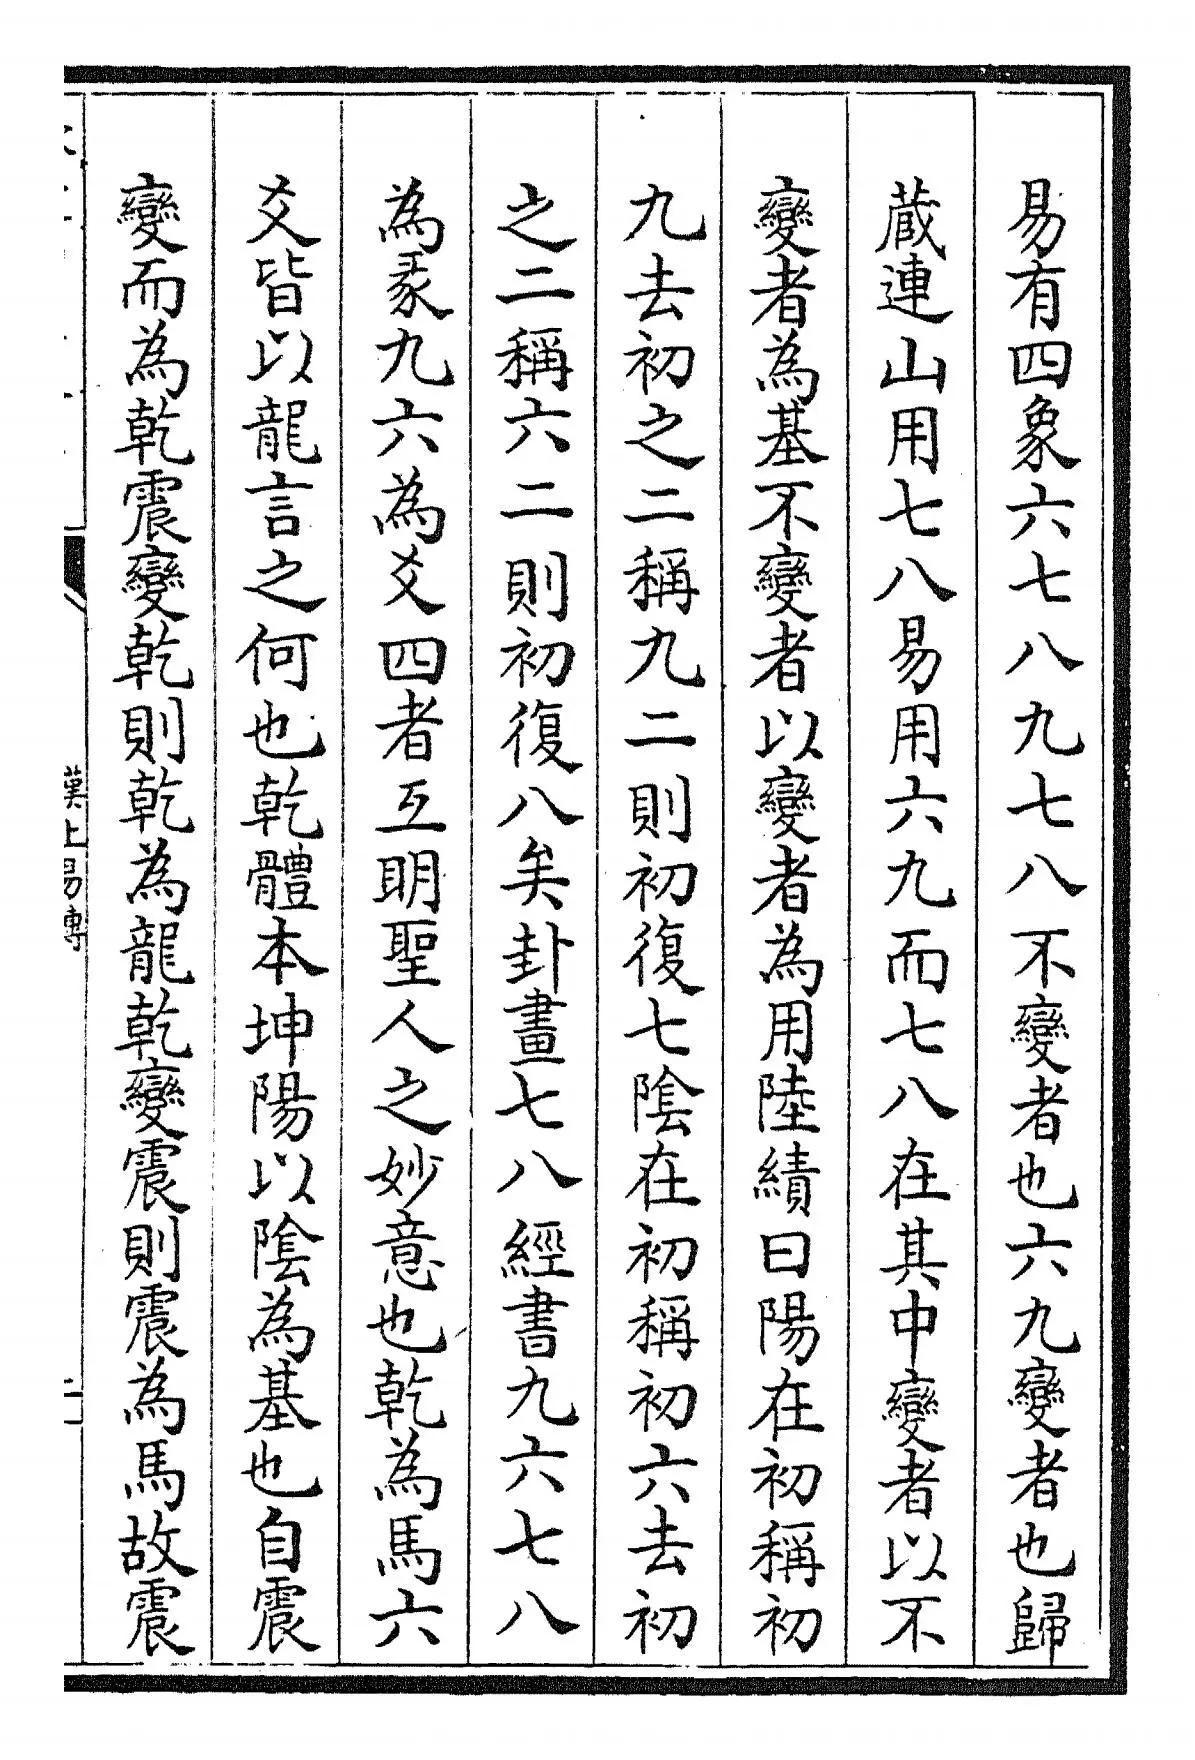 易有四象六七八九七八不變者也六九變者也歸
蔵連山用七八易用六九而七八在其中變者以不
變者為基不變者以變者為用陸績曰陽在初稱初
九去初之二稱九二則初復七隂在初稱初六去初
之二稱六二則初復八矣卦畫七八經書九六七八
為彖九六為爻四者互明聖人之妙意也乾為馬六
爻皆以龍言之何也乾體本坤陽以隂為基也自震
變而為乾震變乾則乾為龍乾變震則震為馬故震
漢上易傳